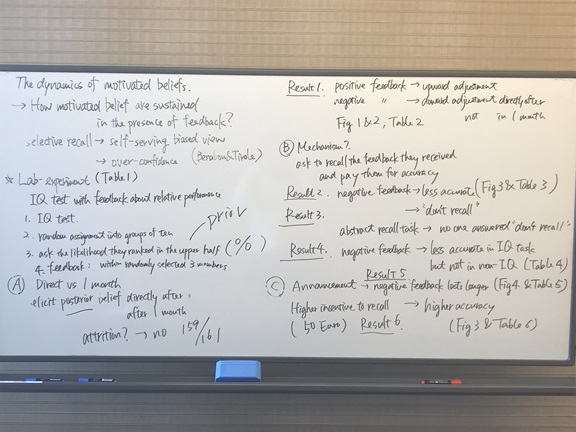 The dynamics of motivated beliefs.
→ How motivated belief are sustained
in the presence of feedback?
selective recall → self-serving biased view
→ over-confidence (Benabou&Tirole)
* Lab-experiment (Table 1)
IQ test with feedback about relative performance
1. IQ test.
2. random assignment into groups of ten
prior
3. ask the likelihood they ranked in the upper half (%)
4. feedback: within randomly selected 3 members
(A) Direct vs 1 month
elicit posterior belief directly after,
after 1 month
attrition? → no 159/161
Result 1. positive feedback → upward adjustment
negative 〃 → downward adjustment directly after
not in 1 month
Fig 1 & 2, Table 2
(B) Mechanism?
ask to recall the feedback they received
and pay them for accuracy
Result 2. negative feedback → less accurate (Fig 3 & Table 3)
Result 3. → "don't recall"
abstract recall task → no one answered "don't recall"
Result 4. negative feedback → less accurate in IQ task
but not in non-IQ (Table 4)
Result 5
(C) Announcement → negative feedback lasts longer (Fig 4 & Table 5)
Higher incentive to recall → higher accuracy
(50 Euro) Result 6. (Fig 3 & Table 6)